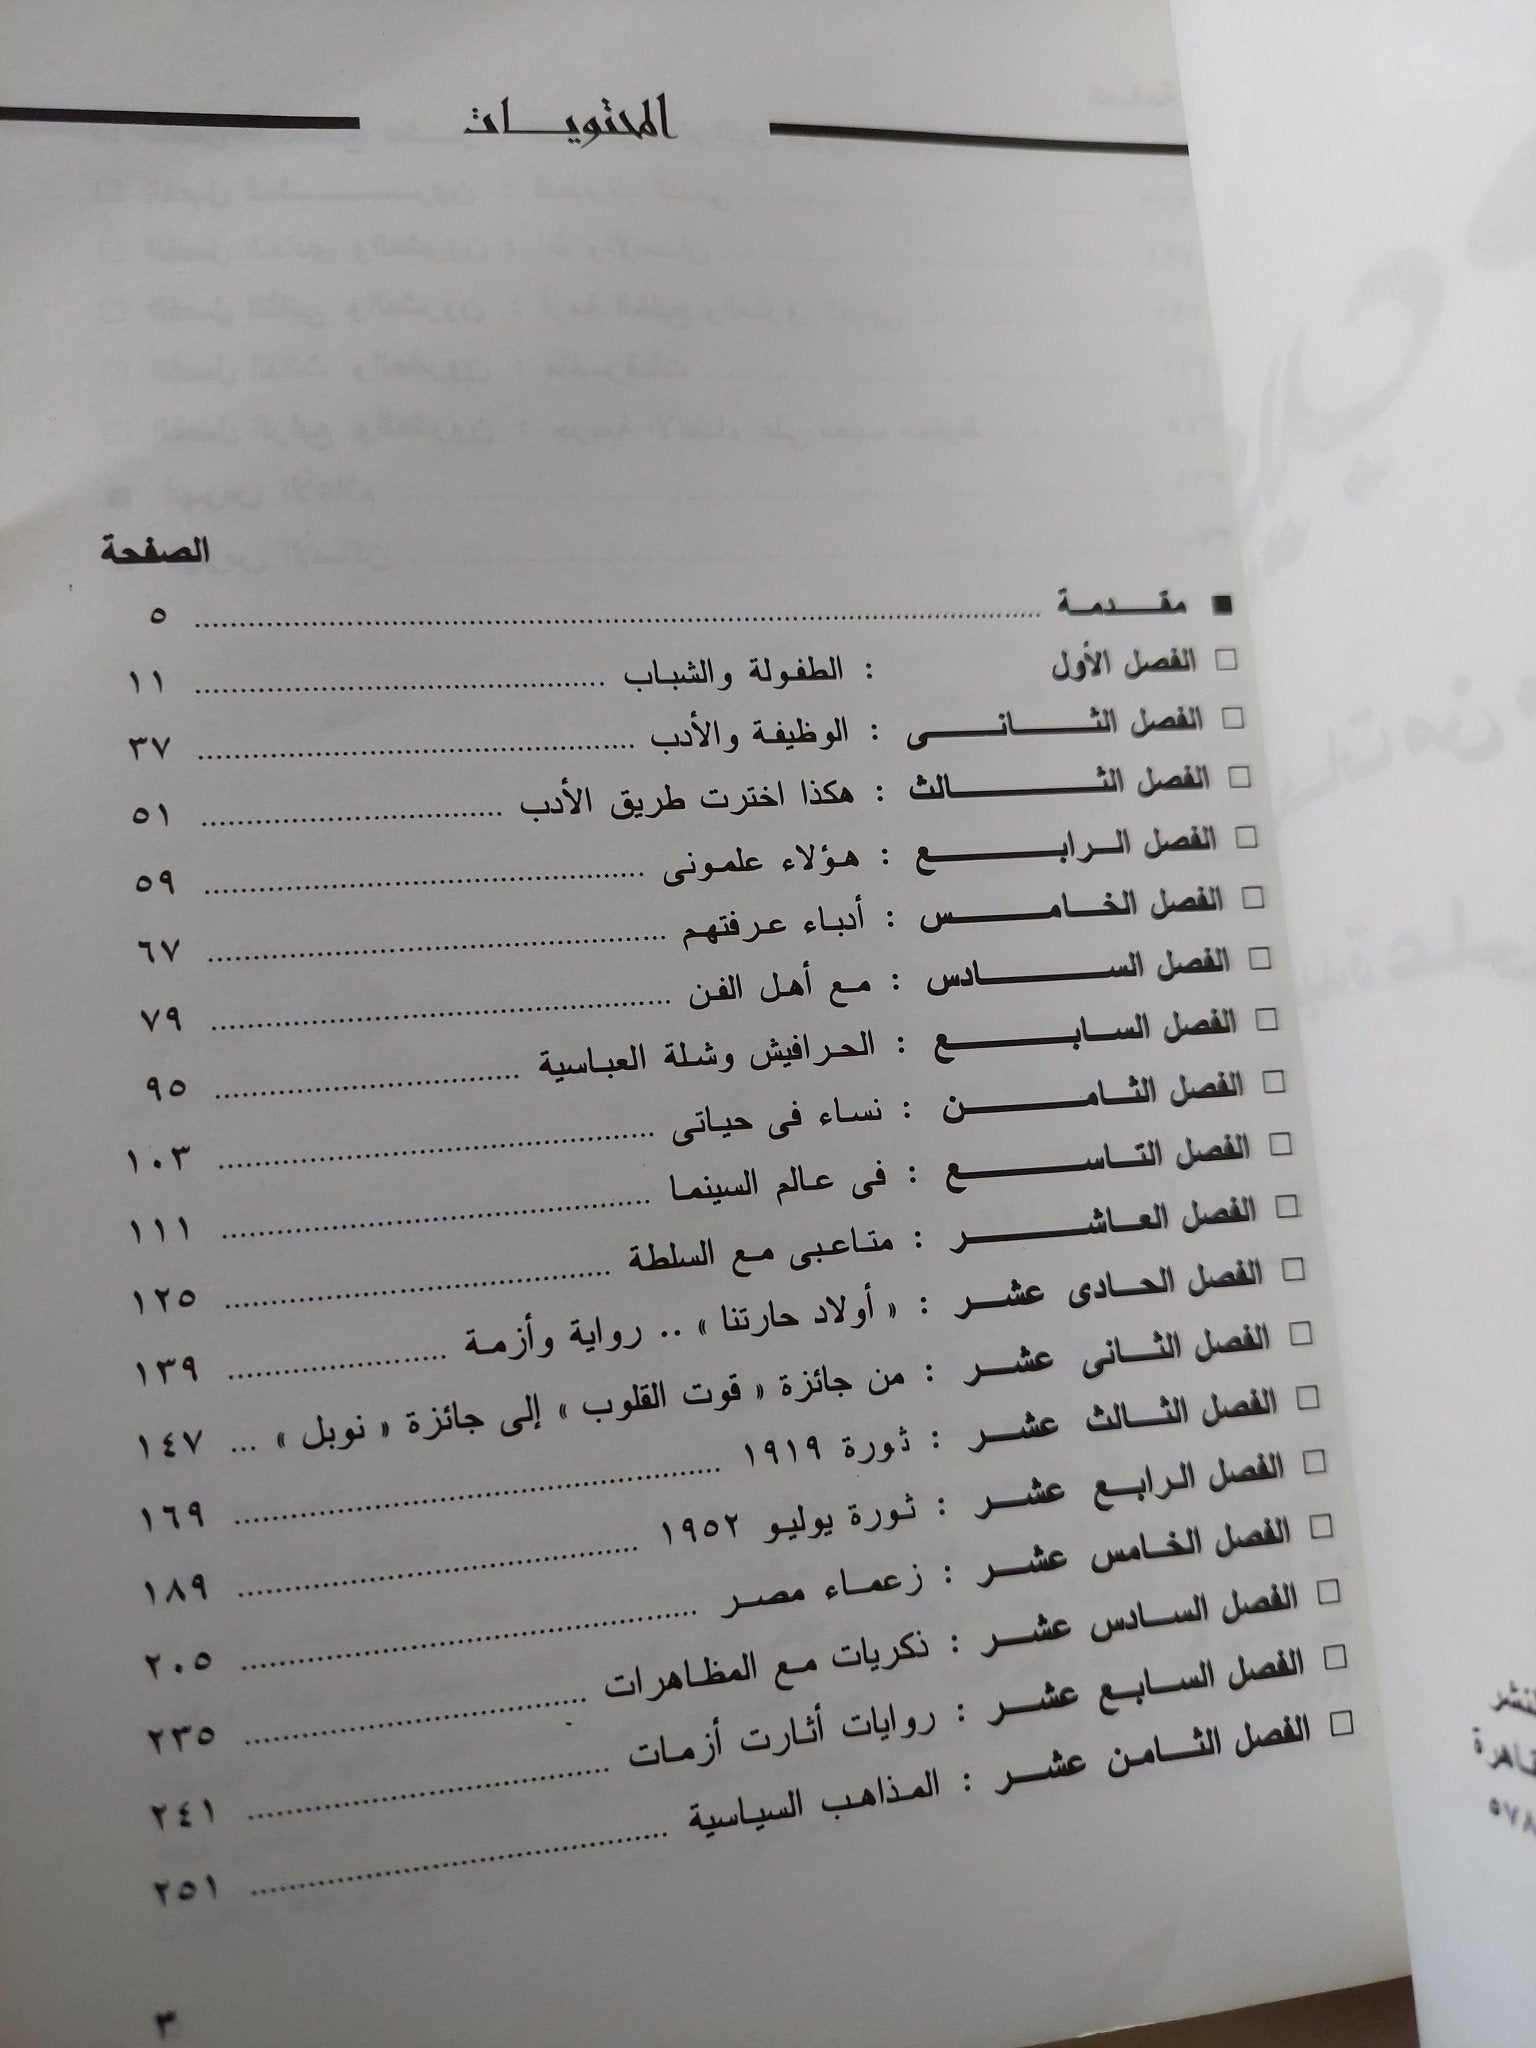 المحتويات
الصفحة
■ مقدمة ........ ٥
□ الفصل الأول : الطفولة والشباب ........ ١١
□ الفصل الثانى : الوظيفة والأدب ........ ٣٧
□ الفصل الثالث : هكذا اخترت طريق الأدب ........ ٥١
□ الفصل الرابع : هؤلاء علمونى ........ ٥٩
□ الفصل الخامس : أدباء عرفتهم ........ ٦٧
□ الفصل السادس : مع أهل الفن ........ ٧٩
□ الفصل السابع : الحرافيش وشلة العباسية ........ ٩٥
□ الفصل الثامن : نساء فى حياتى ........ ١٠٣
□ الفصل التاسع : فى عالم السينما ........ ١١١
□ الفصل العاشر : متاعبى مع السلطة ........ ١٢٥
□ الفصل الحادى عشر : « أولاد حارتنا » .. رواية وأزمة ........ ١٣٩
□ الفصل الثانى عشر : من جائزة « قوت القلوب » إلى جائزة « نوبل » ... ١٤٧
□ الفصل الثالث عشر : ثورة ١٩١٩ ........ ١٦٩
□ الفصل الرابع عشر : ثورة يوليو ١٩٥٢ ........ ١٨٩
□ الفصل الخامس عشر : زعماء مصر ........ ٢٠٥
□ الفصل السادس عشر : ذكريات مع المظاهرات ........ ٢٣٥
□ الفصل السابع عشر : روايات أثارت أزمات ........ ٢٤١
□ الفصل الثامن عشر : المذاهب السياسية ........ ٢٥١
٣